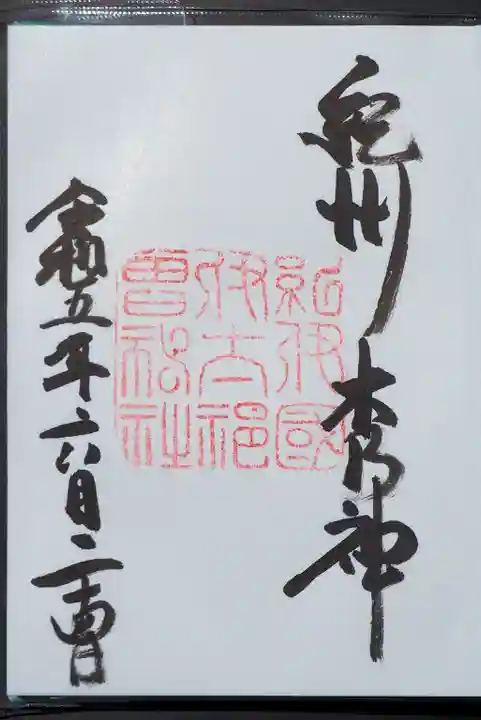 紀州 木乃神
紀伊國
伊太祁
曾神社
令和五年六月二日